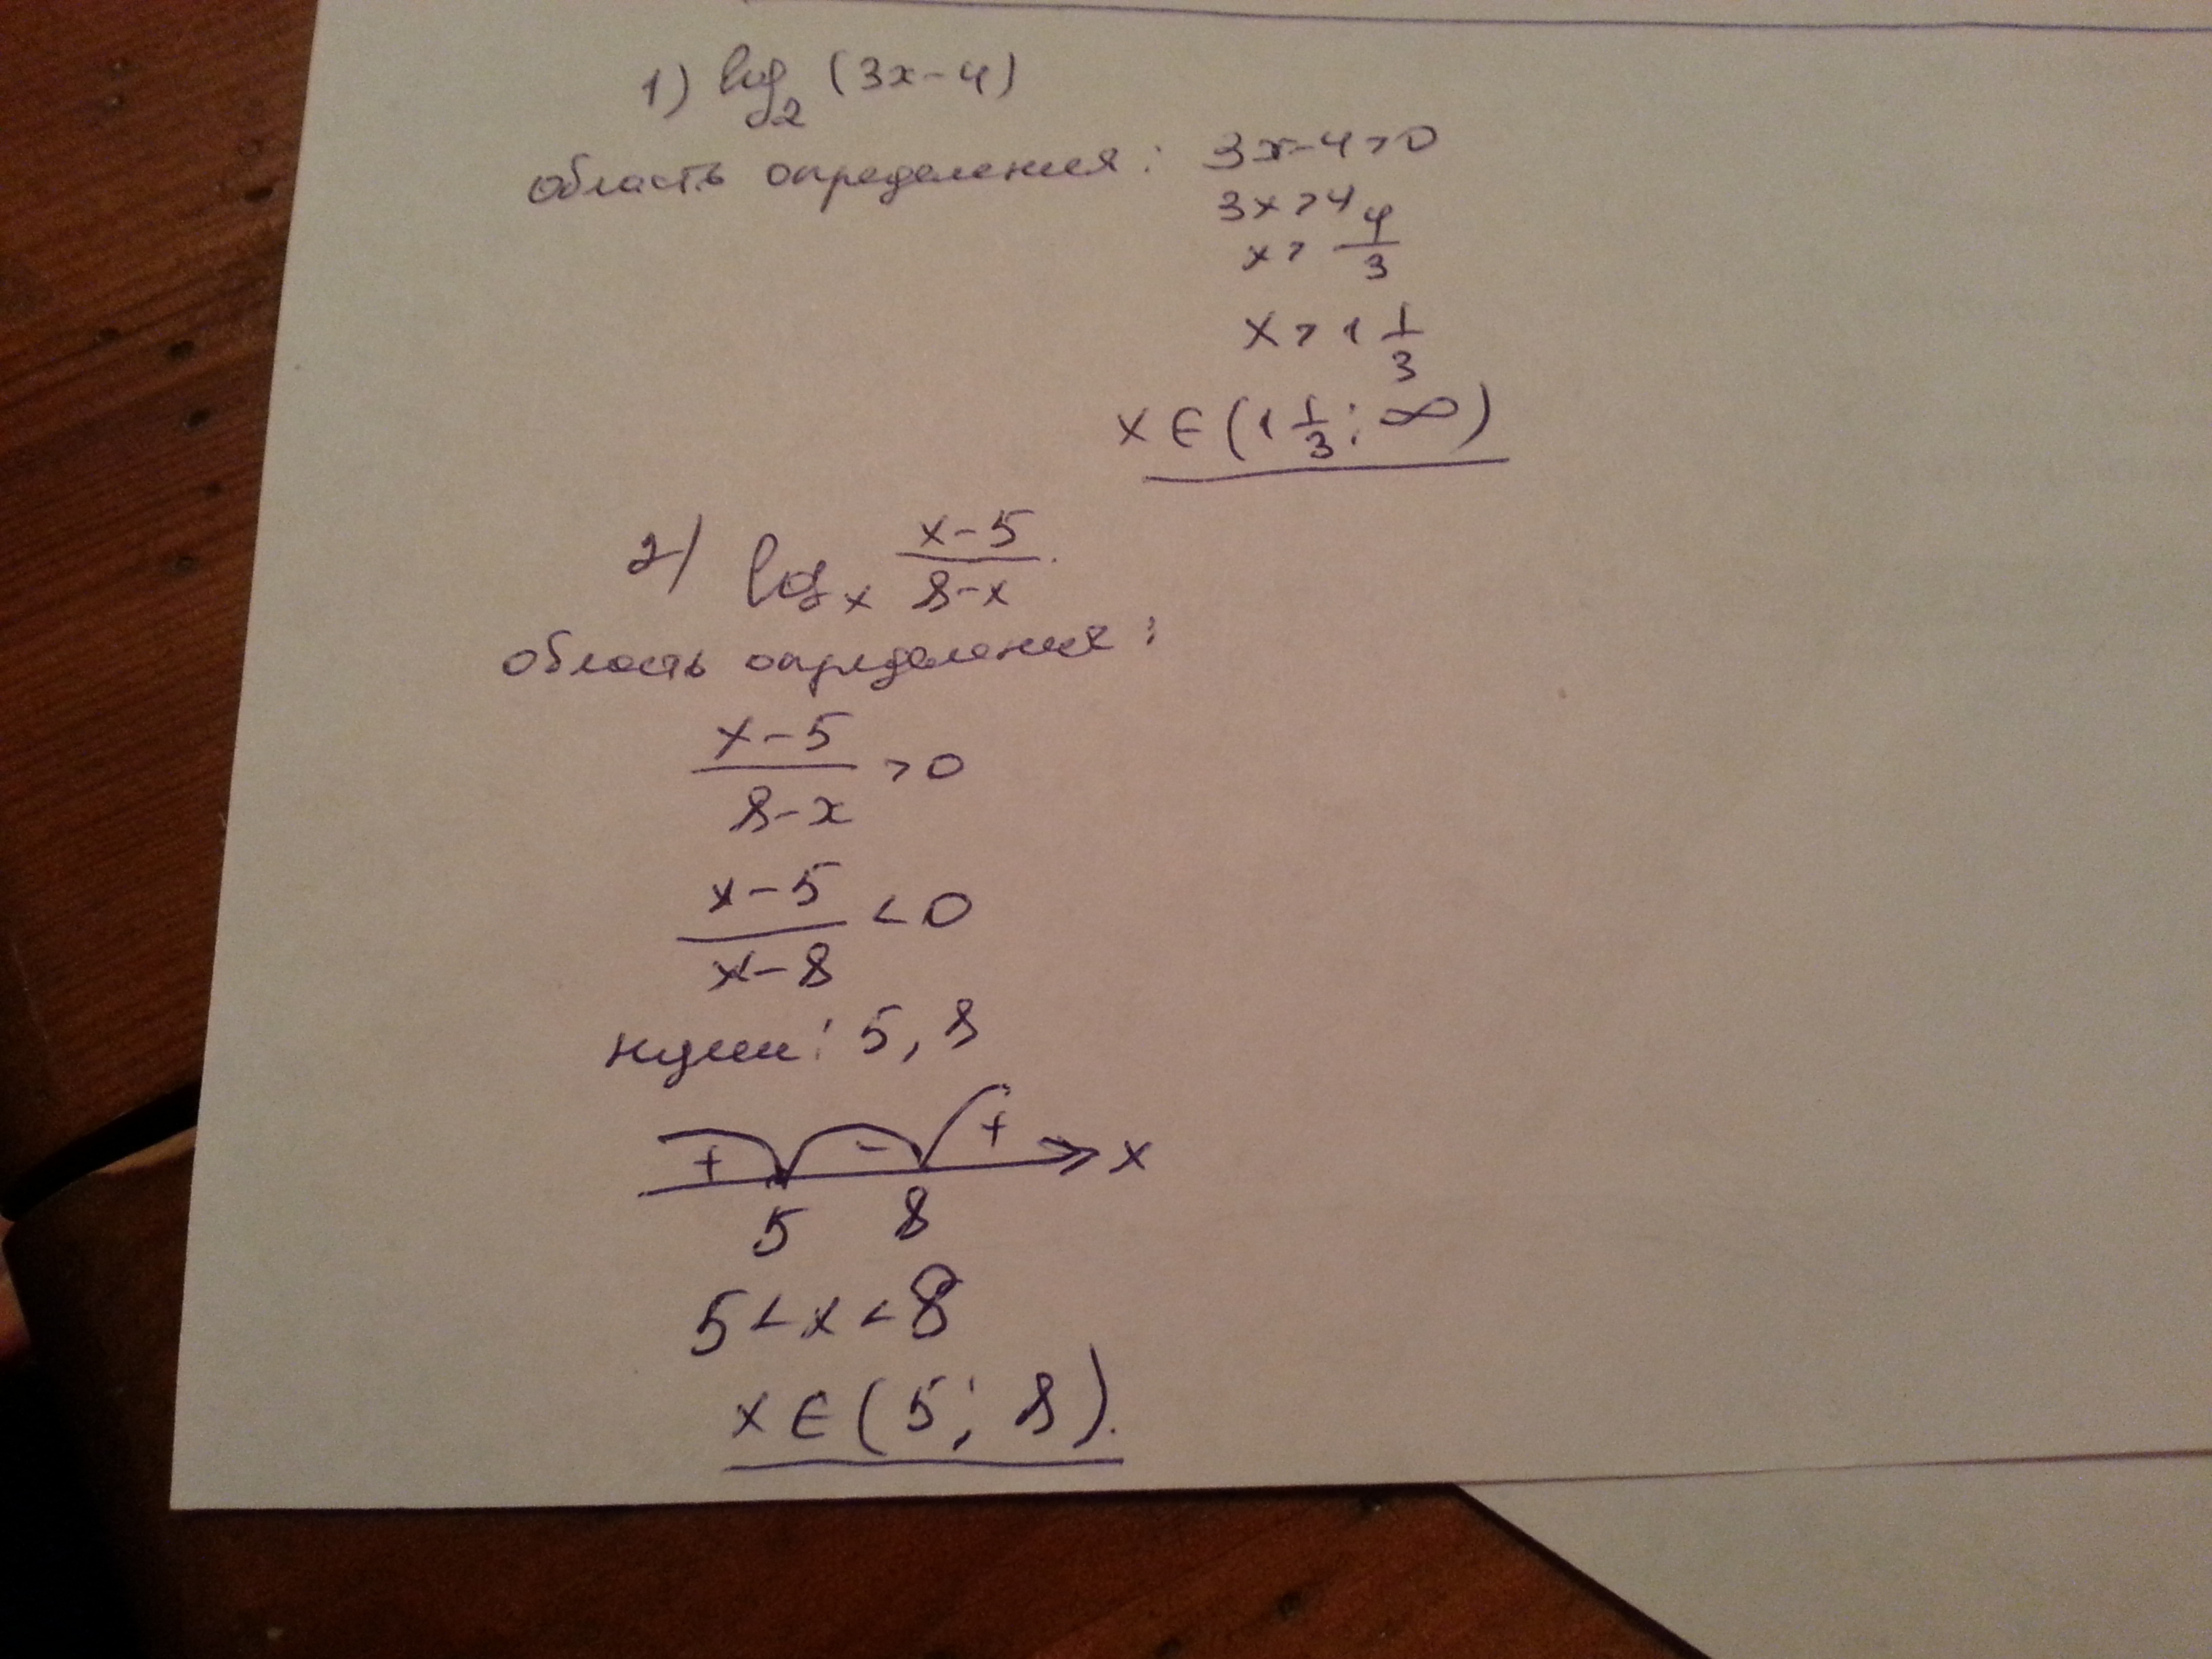 1) log₂ (3x-4)
область определения: 3x-4>0
3x>4
x> 4/3
x>1 1/3
x∈(1 1/3; ∞)
2) logₓ (x-5)/(8-x)
область определения:
(x-5)/(8-x) >0
(x-5)/(x-8) <0
нули: 5, 8
+ - + x
5 8
5<x<8
x∈(5; 8).